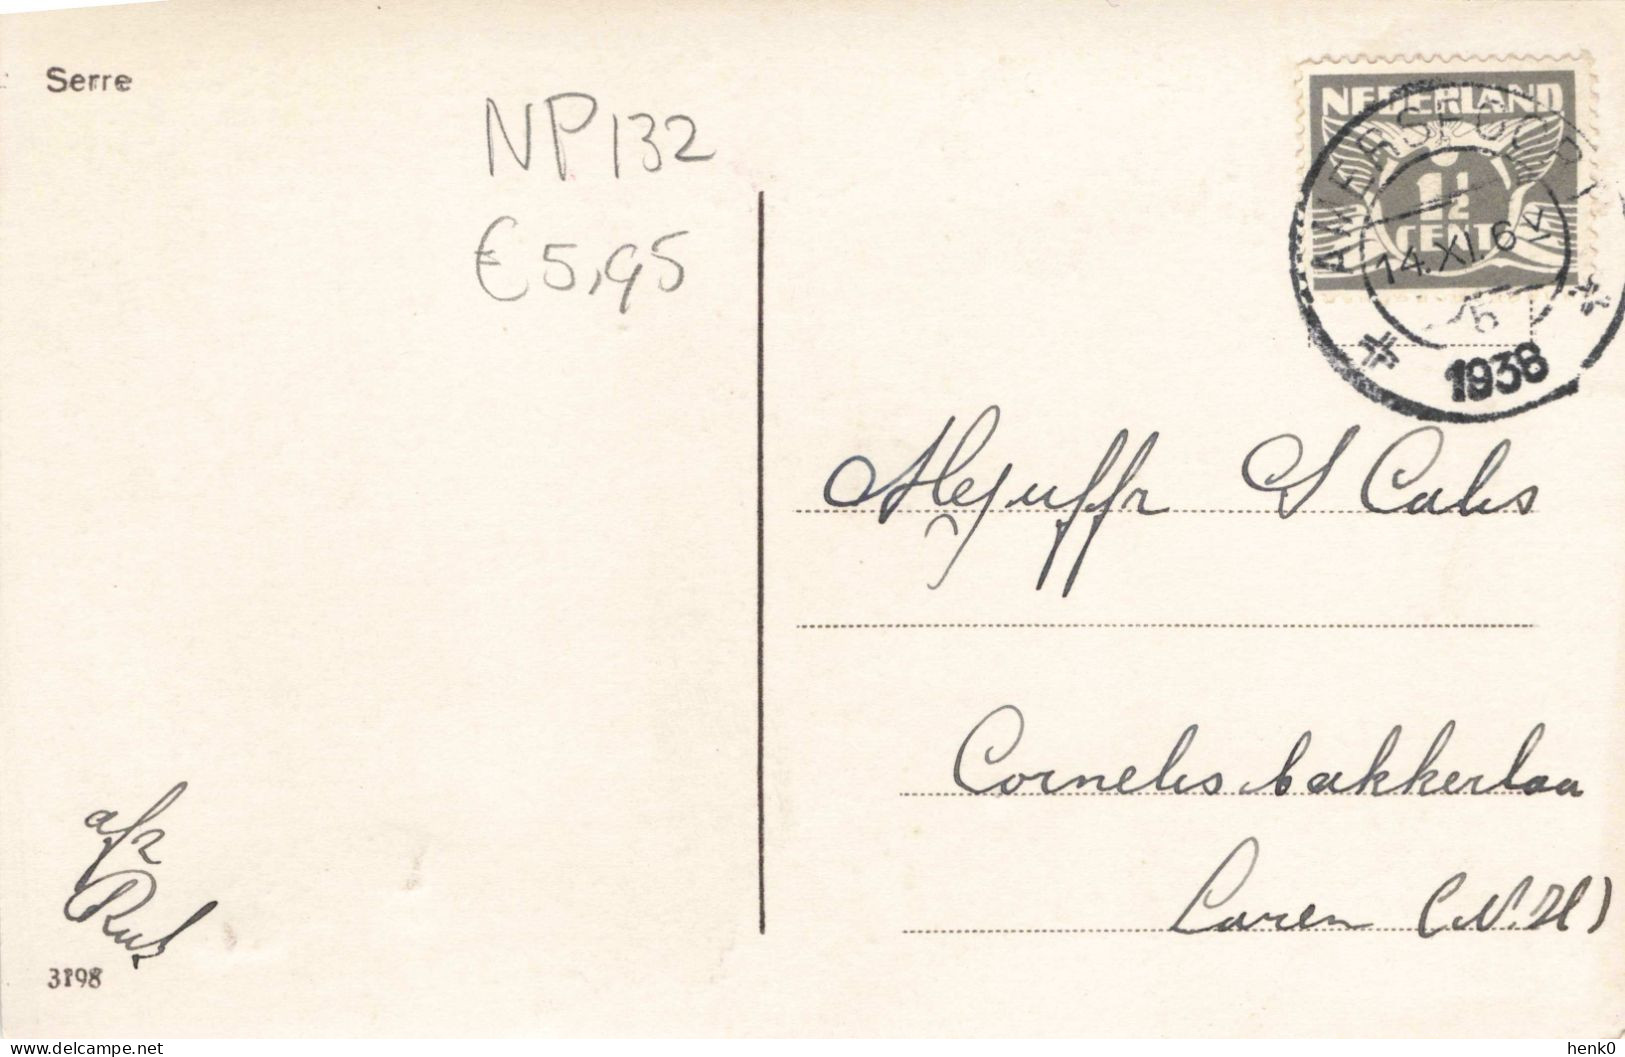 Serre
NP132
€5,95
NEDERLAND
1½
CENT
AMERSFOORT
14.XI.6
5
1938
Mejuffr S Calis
Cornelis bakkerlaan
Laren (N.H)
afz
3198
delcampe.net
henk0